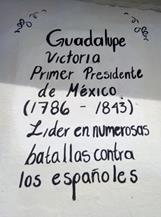 Guadalupe
Victoria
Primer Presidente
de México
(1786 - 1843)
Lider en numerosas
batallas contra
los españoles